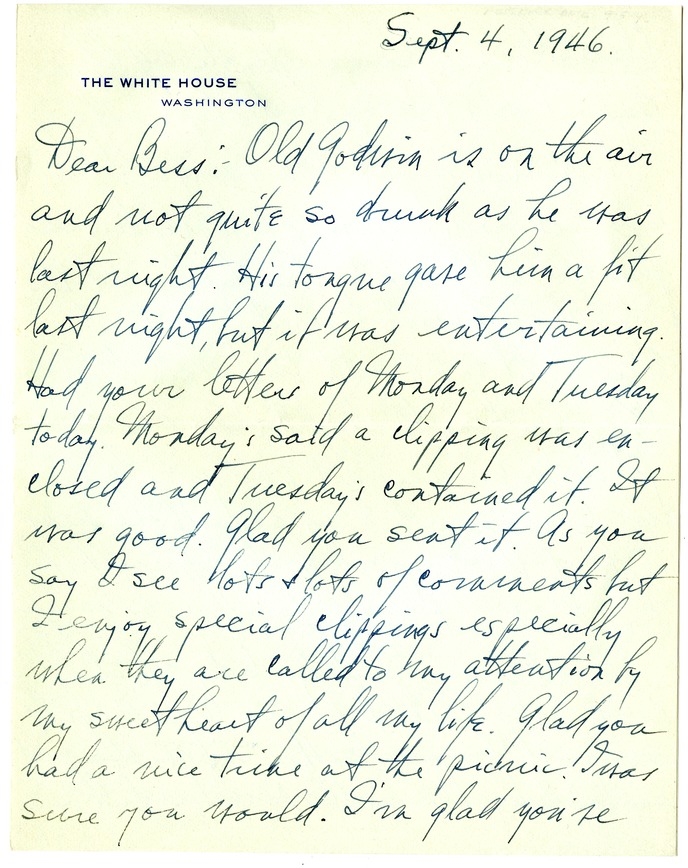 Sept. 4, 1946.
THE WHITE HOUSE
WASHINGTON
Dear Bess:- Old Godwin is on the air
and not quite so drunk as he was
last night. His tongue gave him a fit
last night, but it was entertaining.
Had your letters of Monday and Tuesday
today. Monday's said a clipping was en-
closed and Tuesday's contained it. It
was good. Glad you sent it. As you
say I see lots & lots of comments but
I enjoy special clippings especially
when they are called to my attention by
my sweetheart of all my life. Glad you
had a nice time at the picnic. I was
sure you would. I'm glad you've